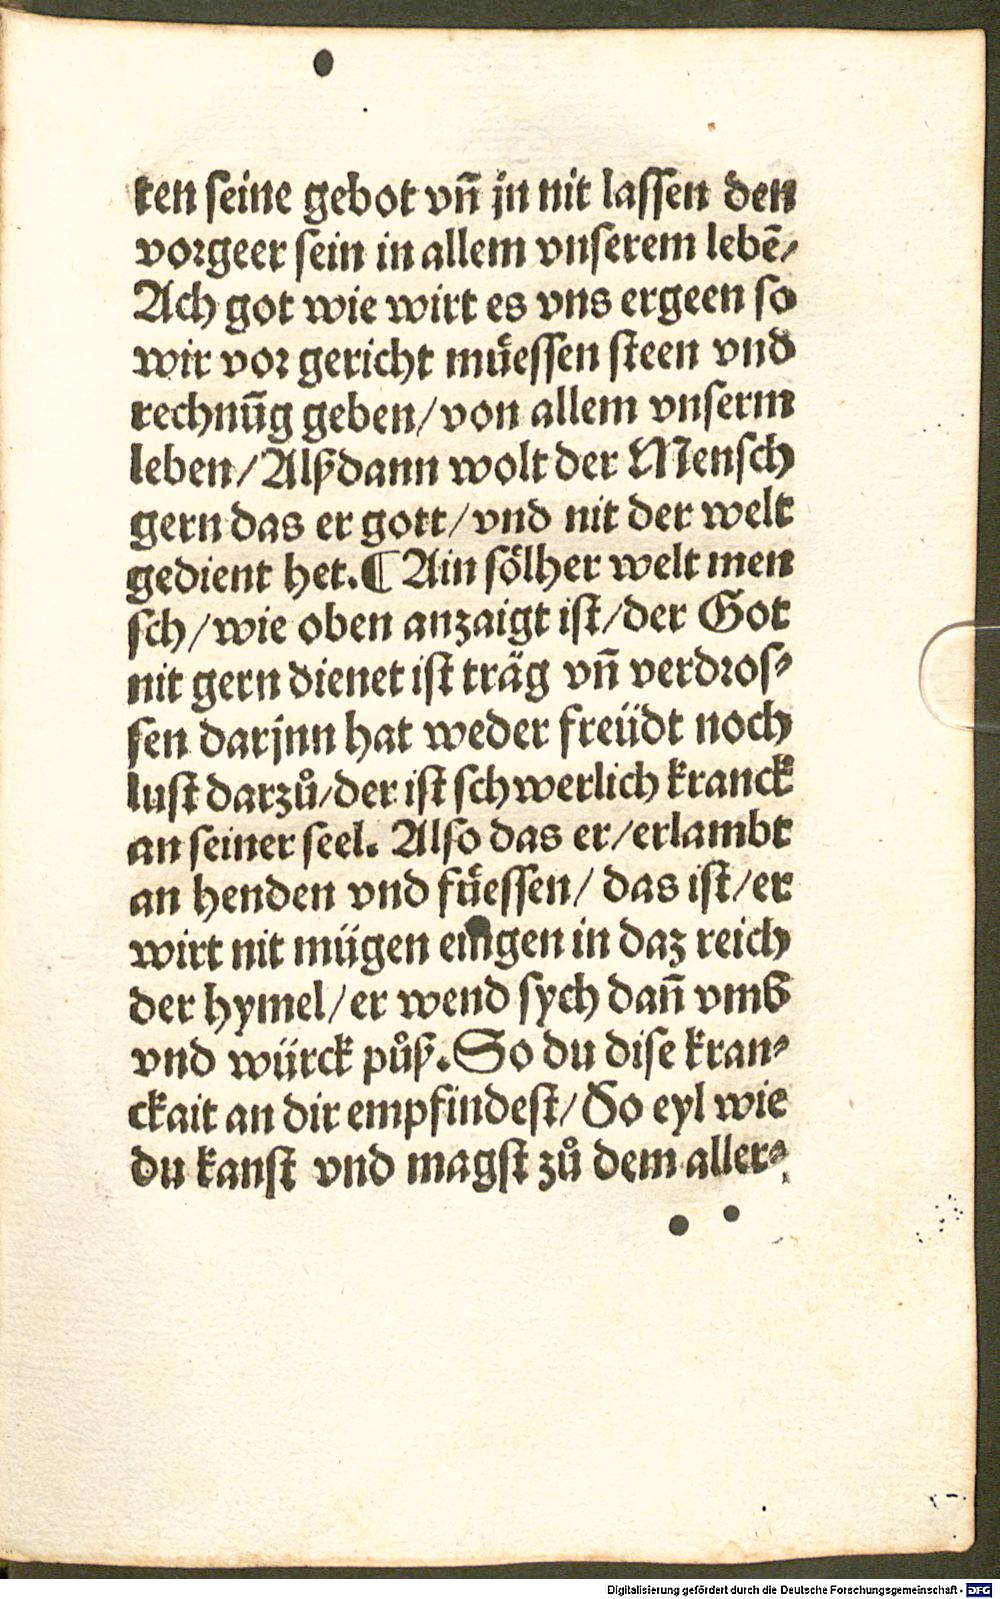 ten seine gebot vn̄ jn nit lassen den
vorgeer sein in allem vnserem lebē/
Ach got wie wirt es vns ergeen so
wir vor gericht muͤessen steen vnd
rechnūg geben/von allem vnserm
leben/Alßdann wolt der Mensch
gern das er gott/vnd nit der welt
gedient het.¶Ain soͤlher welt men
sch/wie oben anzaigt ist/der Got
nit gern dienet ist traͤg vn̄ verdros⸗
sen darjnn hat weder freüdt noch
lust darzuͦ/der ist schwerlich kranck
an seiner seel. Also das er/erlambt
an henden vnd fuͤessen/ das ist/er
wirt nit mügen eingen in daz reich
der hymel/er wend sych dan̄ vmb
vnd würck puͦß.So du dise kran⸗
ckait an dir empfindest/So eyl wie
du kanst vnd magst zuͦ dem aller⸗
Digitalisierung gefördert durch die Deutsche Forschungsgemeinschaft - DFG